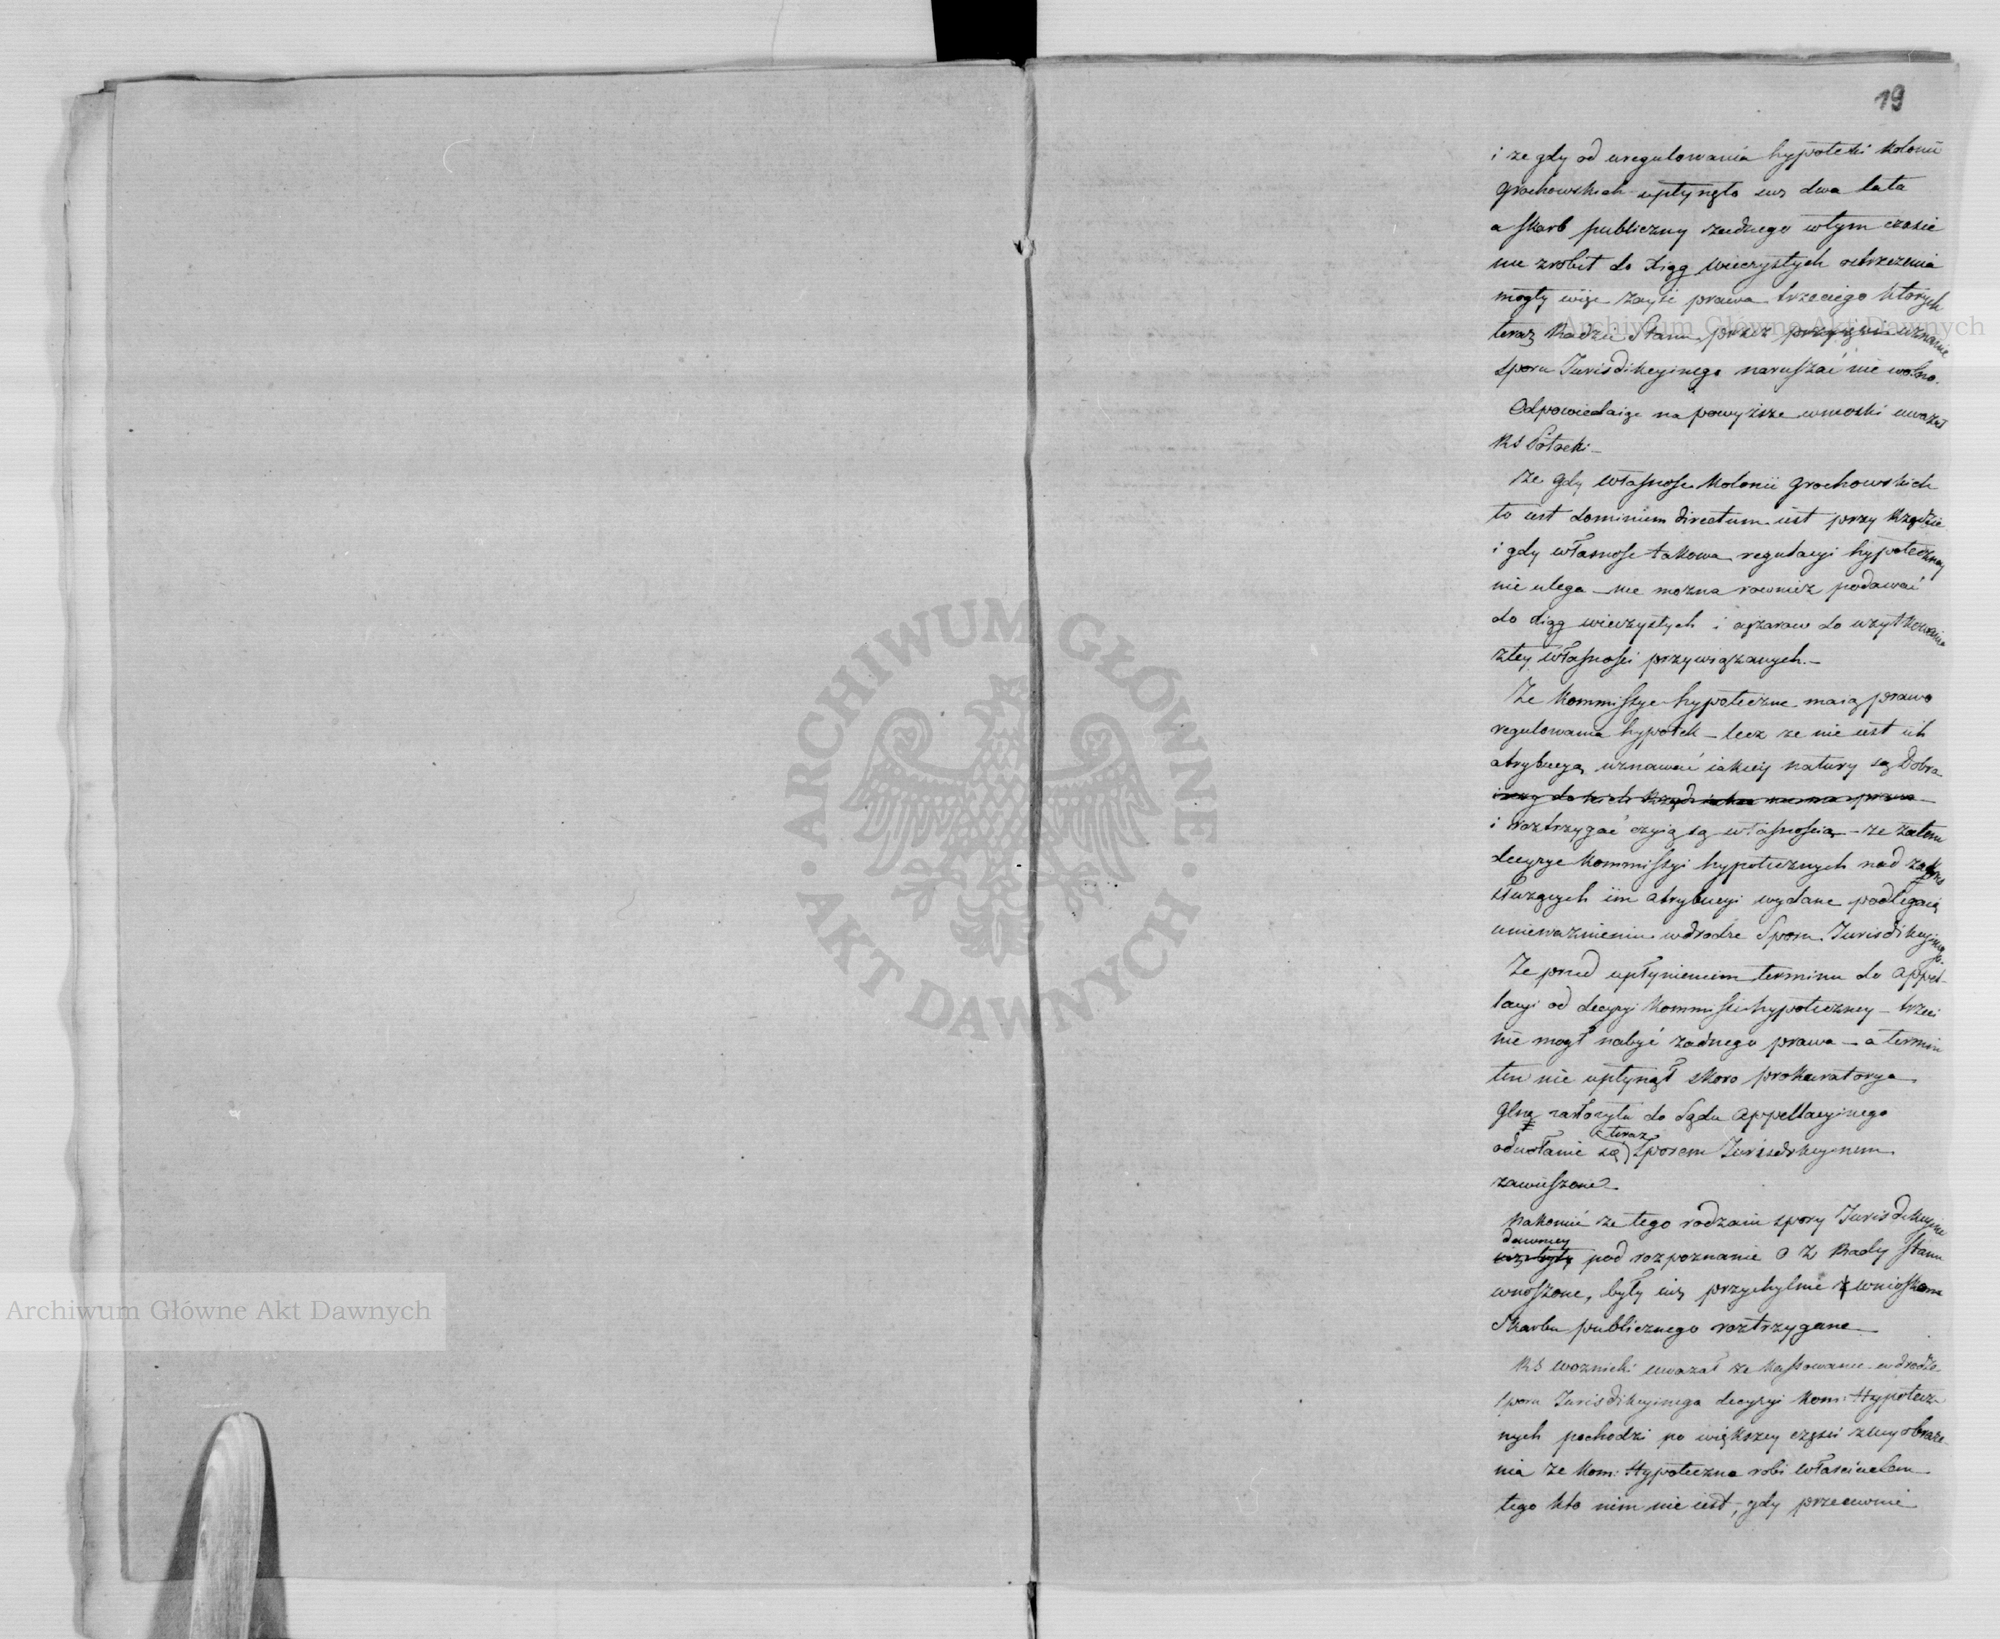 19
i ze gdy od uregulowania hypoteki Kolonii
Grochowskich upłynęło iuż dwa lata
a skarb publiczny żadnego w tym czasie
nie zrobił do xiąg wieczystych ostrzeżenia
mogły więc zayść prawa trzeciego których
teraz Radzie Stanu przez uznanie
sporu Jurisdikcyinego naruszać nie wolno.
Odpowiedaiąc na powyższe wnioski uważał
RS Potocki –
że gdy własność Kolonii Grochowskich
to iest dominium directum iest przy Rządzie
i gdy własność takowa regulacyi hypoteczney
nie ulega – nie można rownież podawać
do xiąg wieczystych i ciężarow do użytkowania
z tey własności przywiązanych. –
Że Kommissye hypoteczne maią prawo
regulowania hypotek – lecz że nie iest ich
atrybucyą uznawać iakiey natury są Dobra
i roztrzygać czyią są własnością – że zatem
decyzye Kommissyi hypotecznych nad zakres
służących im atrybucyi wydane podlegaią
unieważnieniu w drodze Sporu Jurisdikcyinego.
Że przed upłynieniem terminu do appel-
lacyi od decyzyi Kommissii hypoteczney – trzeci
nie mogł nabyć żadnego prawa – a termin
ten nie upłynął skoro prokuratorya
Glna założyła do Sądu Appellacyinego
teraz
odwołanie się Sporem Jurisdikcyinem
zawieszone. –
Nakoniec że tego rodzaiu spory Jurisdikcyine
dawniey
pod rozpoznanie O Z Rady Stanu
wnoszone, były iuż przychylnie wnioskom
Skarbu publicznego roztrzygane –
RS Woznicki uważał że kassowanie w drodze
sporu Jurisdikcyinego decyzyi Kom: Hypotecz-
nych pochodzi po większey części z wyobraże-
nia że Kom: Hypoteczna robi właścicielem
tego kto nim nie iest, gdy przeciwnie
Archiwum Główne Akt Dawnych
Archiwum Główne Akt Dawnych
ARCHIWUM GŁÓWNE · AKT DAWNYCH ·